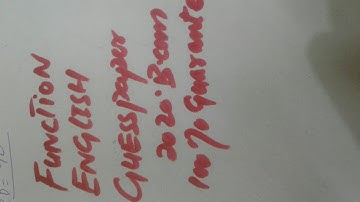 FUNCTION
ENGLISH
GUESS paper
2020. B.com
100% Guarante